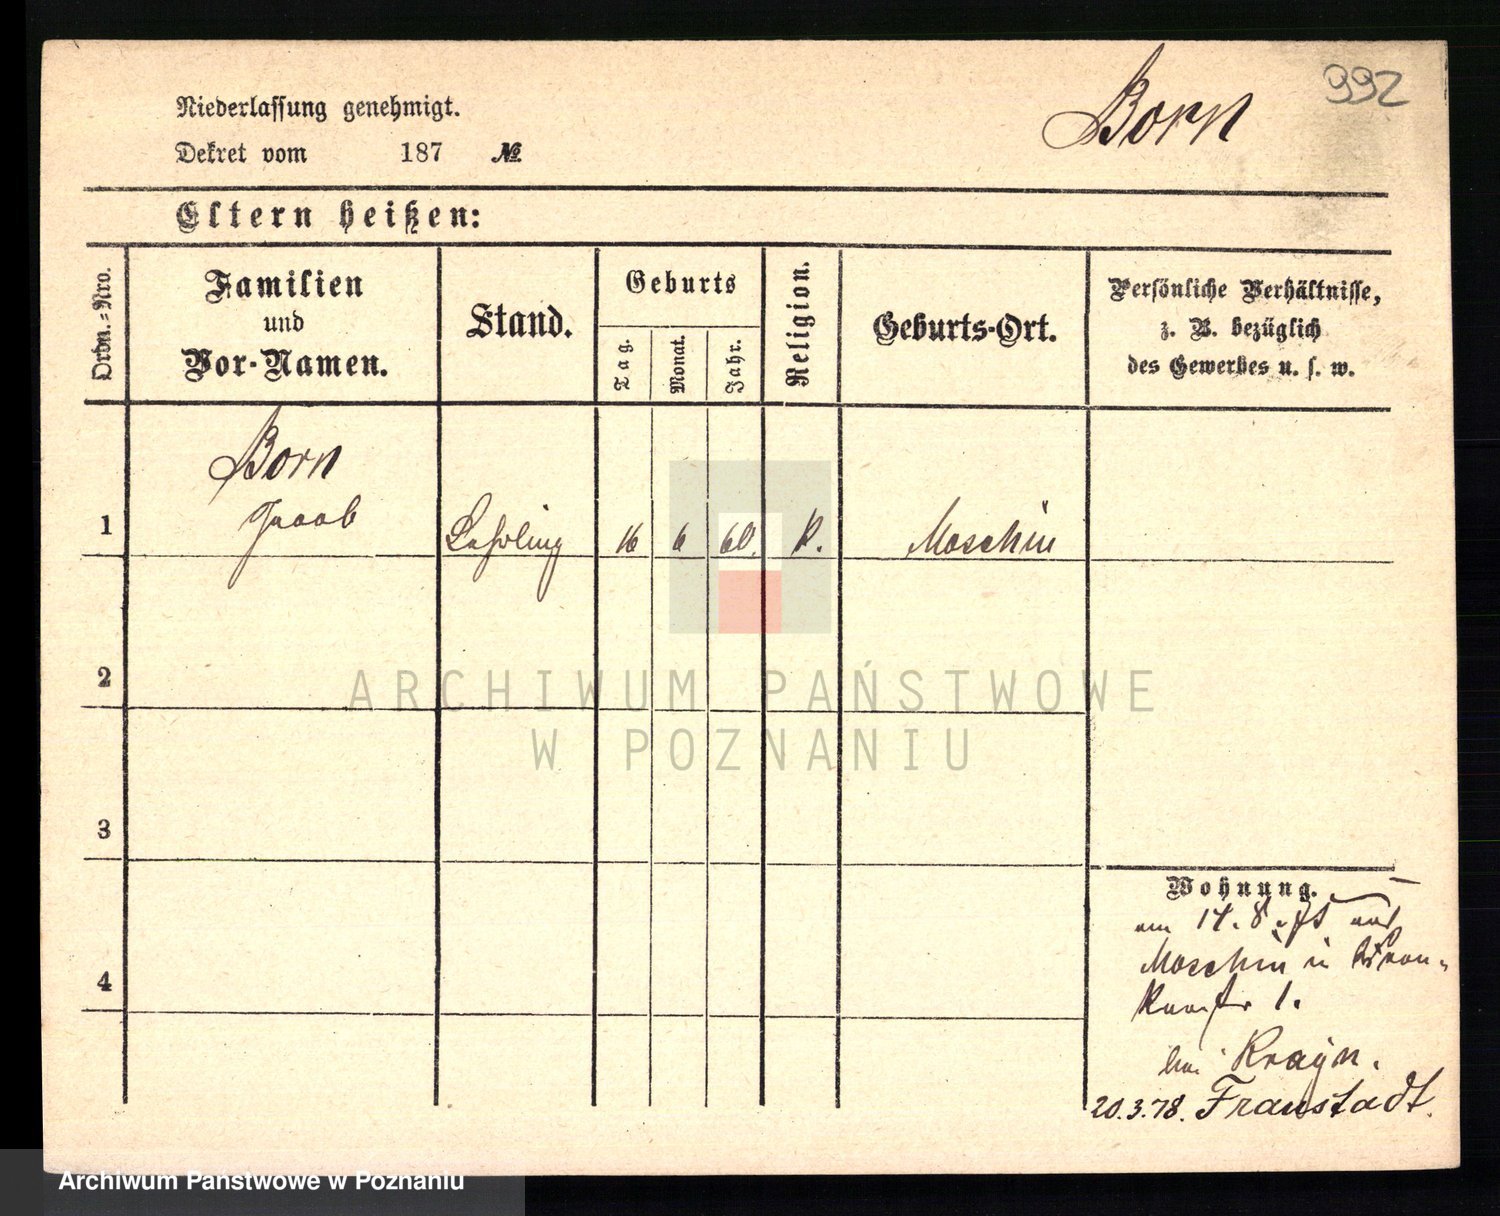 992
Born
Niederlassung genehmigt.
Dekret vom 187 №
Eltern heißen:
Ordn.=Nro.
Familien
und
Vor-Namen.
Stand.
Geburts
Tag.
Monat.
Jahr.
Religion.
Geburts-Ort.
Persönliche Verhältnisse,
z. B. bezüglich
des Gewerbes u. s. w.
Born
1 Jacob Lehrling 16 6 60. k. Moschin
2
3
4
Wohnung.
am 14. 8. 75 aus
Moschin in
1.
bei Krayn.
20.3.78. Fraustadt.
ARCHIWUM PAŃSTWOWE
W POZNANIU
Archiwum Państwowe w Poznaniu